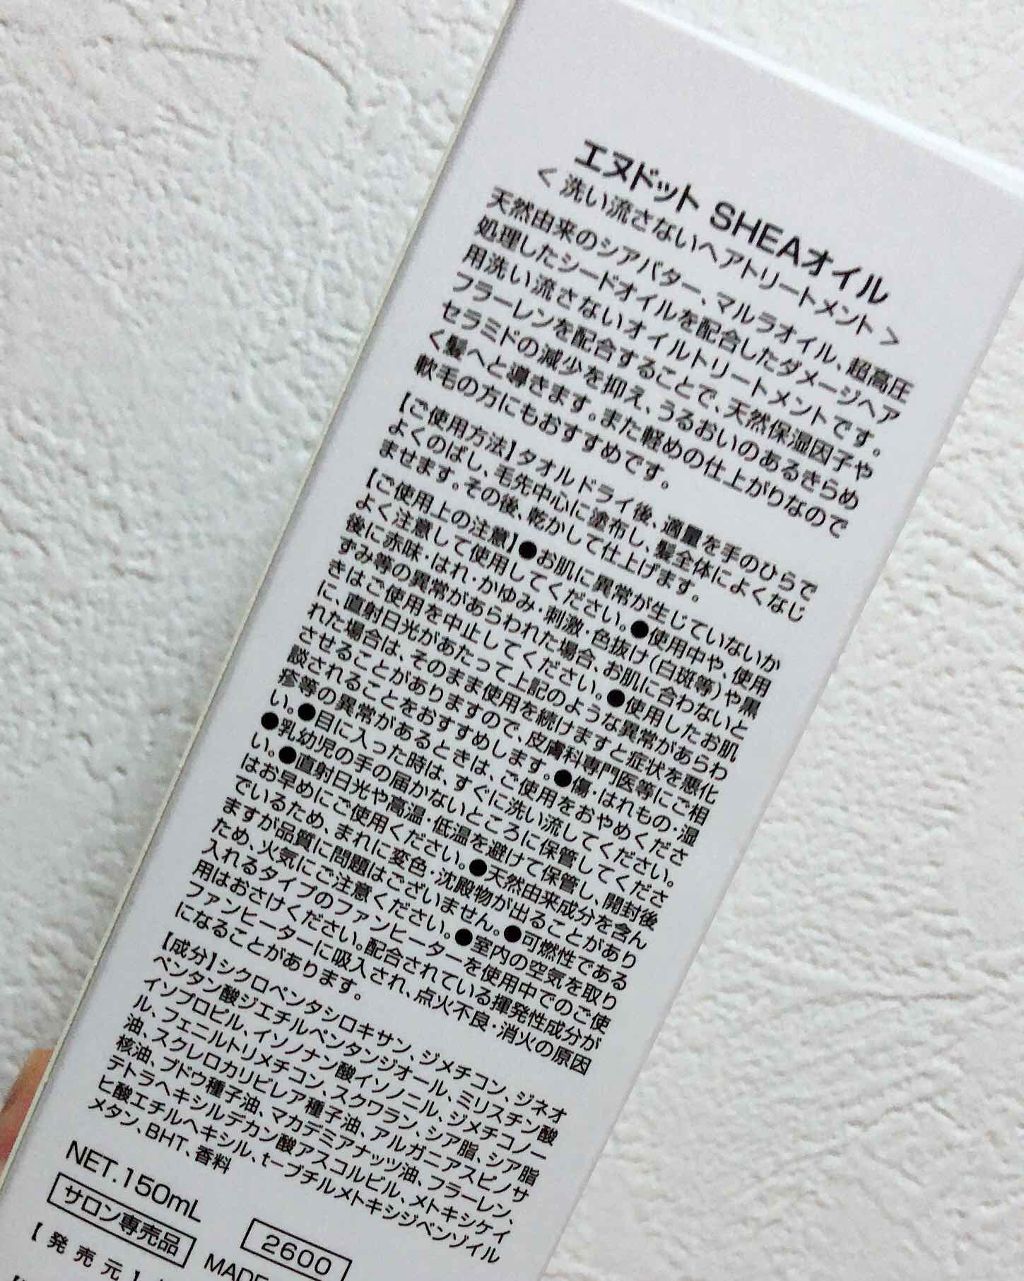 エヌドット SHEAオイル
< 洗い流さないヘアトリートメント >
天然由来のシアバター、マルラオイル、超高圧
処理したシードオイルを配合したダメージヘア
用洗い流さないオイルトリートメントです。
フラーレンを配合することで、天然保湿因子や
セラミドの減少を抑え、うるおいのあるきらめ
く髪へと導きます。また軽めの仕上がりなので
軟毛の方にもおすすめです。
【ご使用方法】タオルドライ後、適量を手のひらで
よくのばし、毛先中心に塗布し、髪全体によくなじ
ませます。その後、乾かして仕上げます。
【ご使用上の注意】●お肌に異常が生じていないか
よく注意して使用してください。●使用中や、使用
後に赤味・はれ・かゆみ・刺激・色抜け(白斑等)や黒
ずみ等の異常があらわれた場合、お肌に合わないと
きはご使用を中止してください。●使用したお肌
に、直射日光があたって上記のような異常があらわ
れた場合は、そのまま使用を続けますと症状を悪化
させることがありますので、皮膚科専門医等にご相
談されることをおすすめします。●傷・はれもの・湿
疹等の異常があるときは、ご使用をおやめくださ
い。●目に入った時は、すぐに洗い流してください。
●乳幼児の手の届かないところに保管してくださ
い。●直射日光や高温・低温を避けて保管し、開封後
はお早めにご使用ください。●天然由来成分を含ん
でいるため、まれに変色・沈殿物が出ることがあり
ますが品質に問題はございません。●可燃性である
ため、火気にご注意ください。●室内の空気を取り
入れるタイプのファンヒーターを使用中でのご使
用はおさけください。配合されている揮発性成分が
ファンヒーターに吸入され、点火不良・消火の原因
になることがあります。
【成分】シクロペンタシロキサン、ジメチコン、ジネオ
ペンタン酸ジエチルペンタンジオール、ミリスチン酸
イソプロピル、イソノナン酸イソノニル、ジメチコノー
ル、フェニルトリメチコン、スクワラン、シア脂、シア脂
油、スクレロカリビレア種子油、アルガニアスピノサ
核油、ブドウ種子油、マカデミアナッツ油、フラーレン、
テトラヘキシルデカン酸アスコルビル、メトキシケイ
ヒ酸エチルヘキシル、t-ブチルメトキシジベンゾイル
メタン、BHT、香料
NET.150mL
サロン専売品
2600
【発売元】